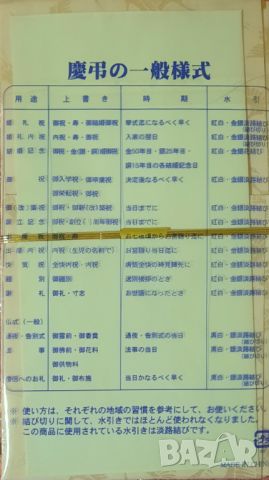 慶弔の一般様式
用途 上書き 時期 水引
婚礼祝 御祝・寿・御結婚御祝 挙式迄になるべく早く 紅白・金銀淡路結び
(結び切り)
婚礼内祝 内祝・寿・御祝 入席の翌日 紅白・金銀淡路結び
結婚記念 御祝・金(銀・銅)婚御祝 金50年目・銀25年目 紅白・金銀花結び
銅15年目の各結婚記念日
御祝 御入学祝・御卒業祝 決定後なるべく早く 紅白・金銀淡路結び
御栄転祝・御祝
御祝・御新(改)築祝 当日までに 紅白・金銀淡路結び
御祝・創立(○)周年御祝 当日までに 紅白・金銀淡路結び
出産内祝 内祝(生児の名前で) お宮詣り当日迄に 紅白・金銀淡路結び
快気祝 全快内祝・内祝 病気全快の時見舞先に 紅白・金銀淡路結び
御餞別 送別挨拶のとき 紅白・金銀淡路結び
謝礼 御礼・寸志 お世話になったとき 紅白・金銀淡路結び
仏式(一般)
通夜・告別式 御霊前・御香資 通夜・告別式の当日 黒白・銀淡路結び
(結び切り)
法事 御佛前・御花料 法事の当日 黒白・銀淡路結び
御供物料
僧侶へのお礼 御礼・御布施 当日かなるべく早く 黒白・銀淡路結び
※ 使い方は、それぞれの地域の習慣を参考にして、お使いください。
※ 結び切りに関して、水引きではほとんど使われなくなりました。
この商品に使用されている水引きは淡路結びです。
MADE IN
BAZAR